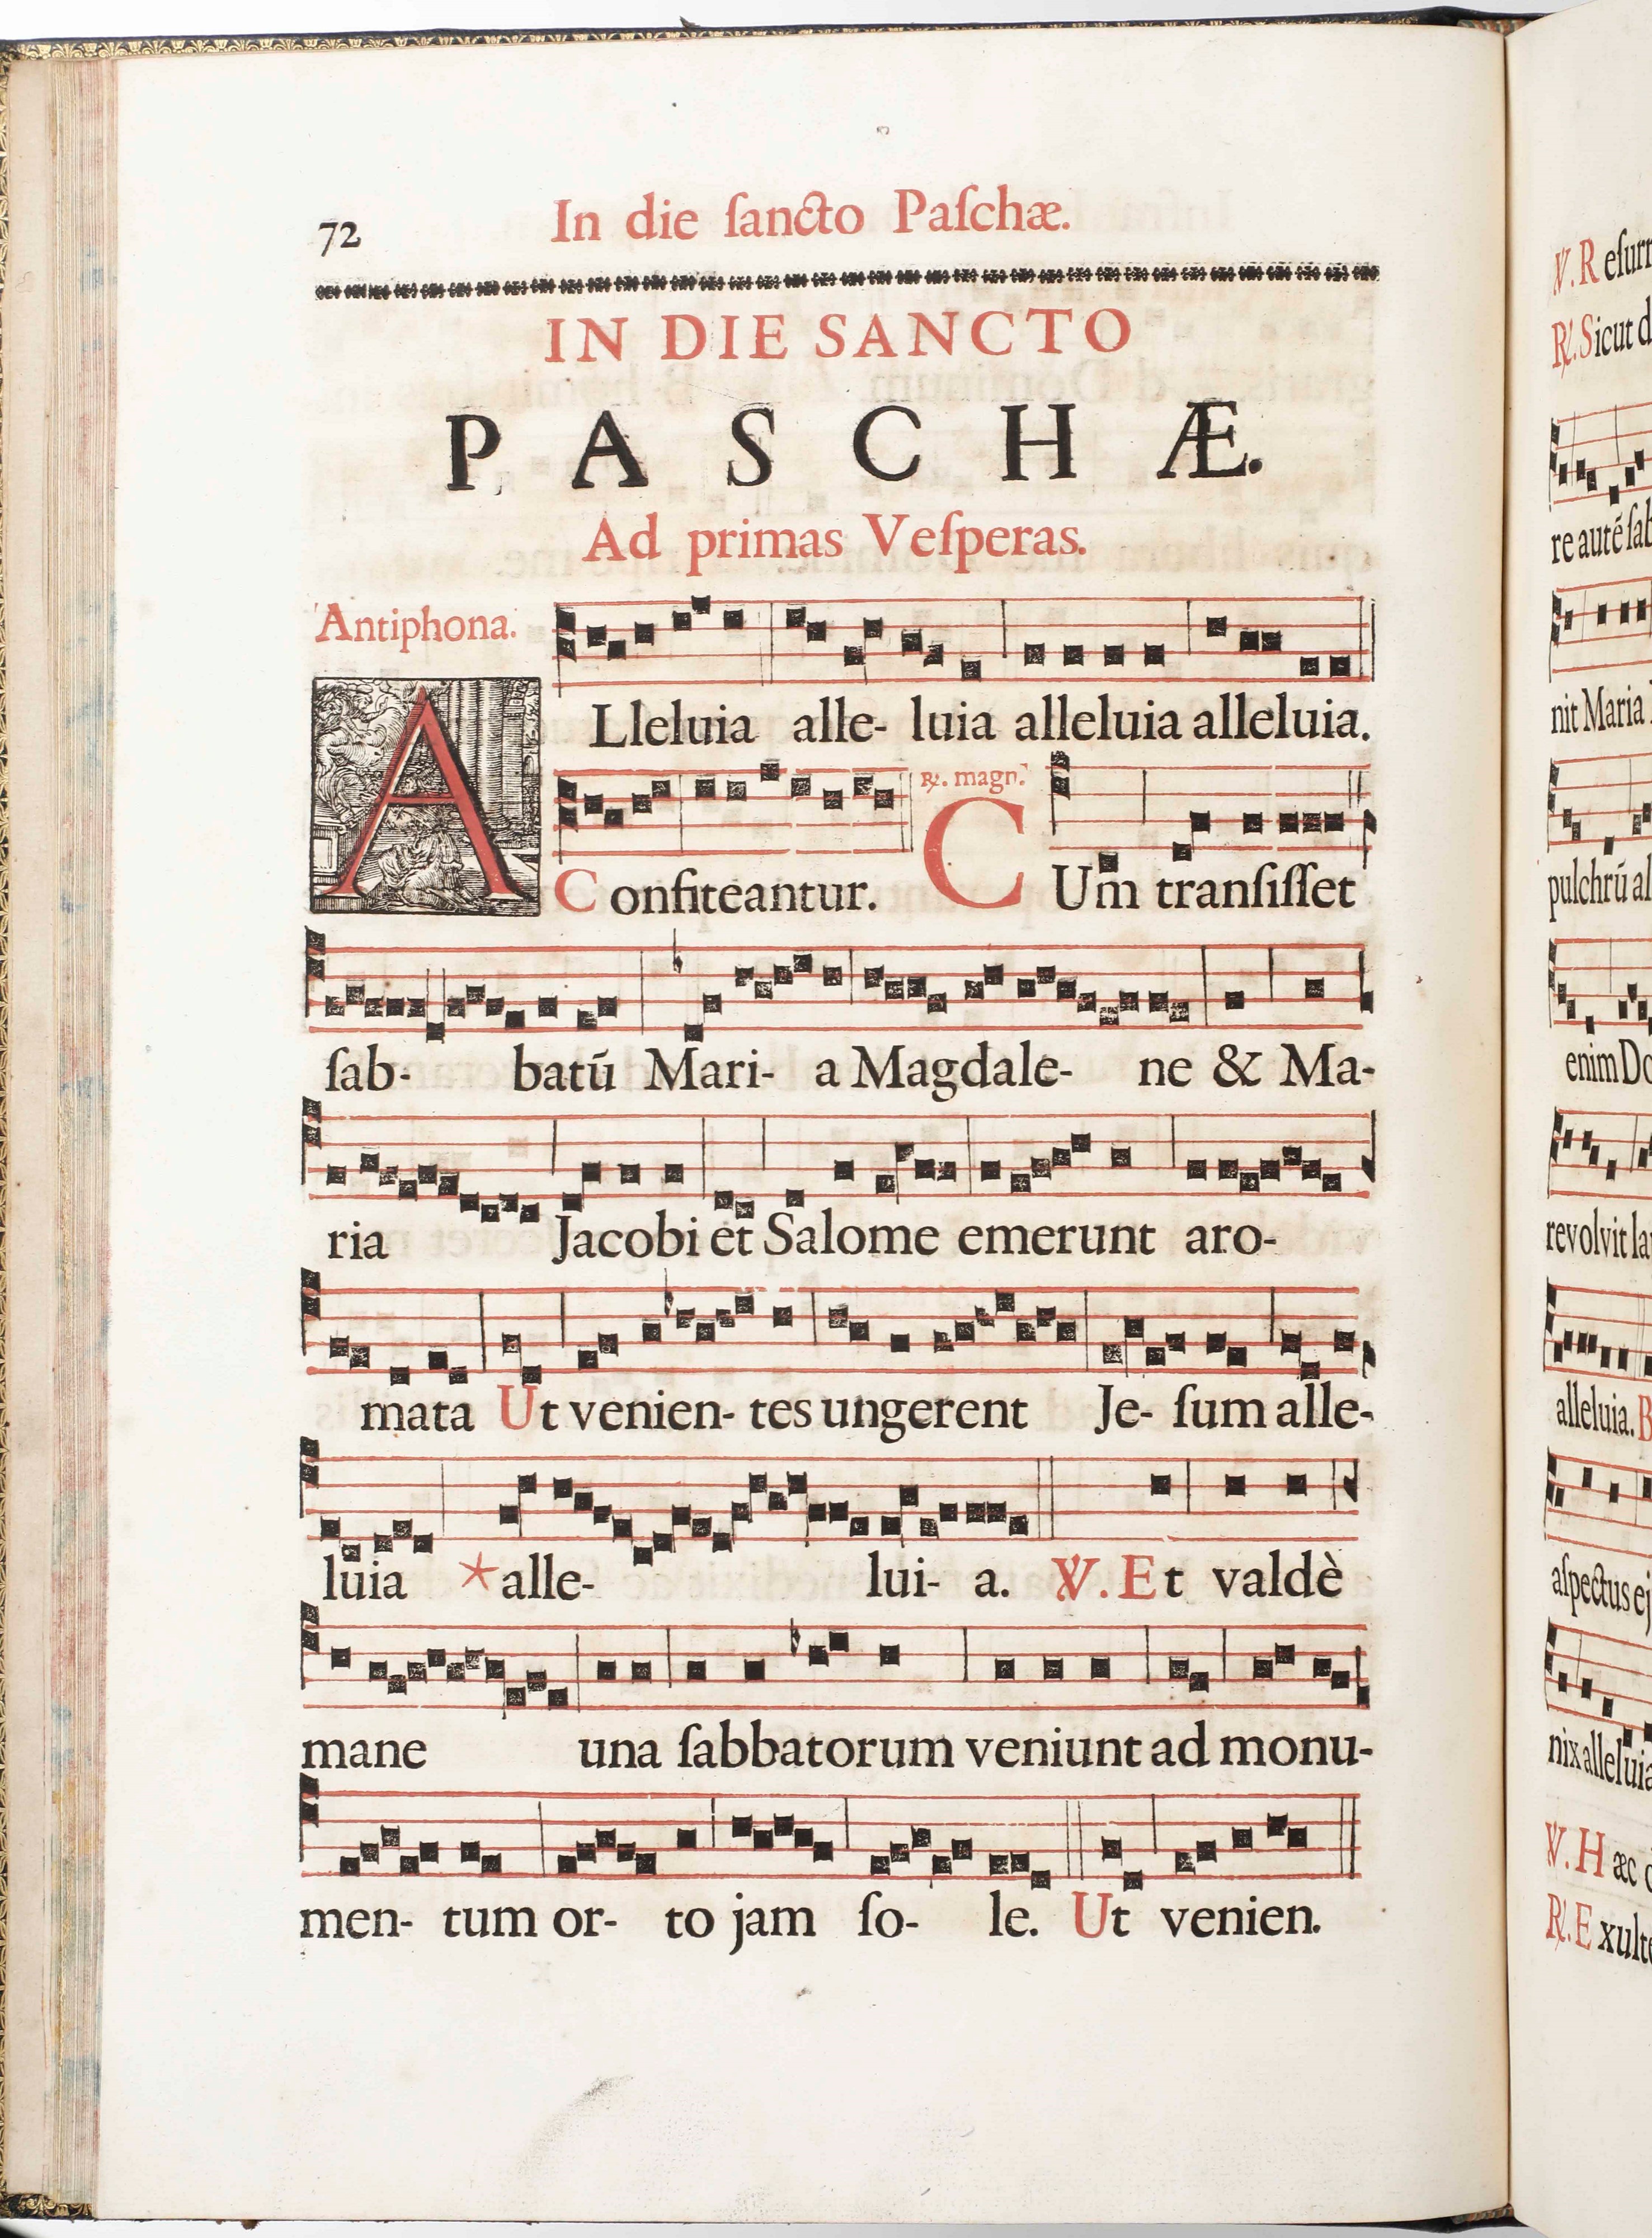 72 In die ſancto Paſchæ.
IN DIE SANCTO
PASCHÆ.
Ad primas Veſperas.
Antiphona.
ALleluia alle- luia alleluia alleluia.
Confiteantur. ℟. magn. CUm tranſiſſet
ſab- batū Mari- a Magdale- ne & Ma-
ria Jacobi et Salome emerunt aro-
mata Ut venien- tes ungerent Je- ſum alle-
luia *alle- lui- a. ℣. Et valdè
mane una ſabbatorum veniunt ad monu-
men- tum or- to jam ſo- le. Ut venien.
℣. R eſurr
℟. Sicut d
re autē ſab
nit Maria
pulchrū al
enim Do
revolvit la
alleluia. B
aſpectus ej
nix alleluia
℣. H æc d
℟. E xulte